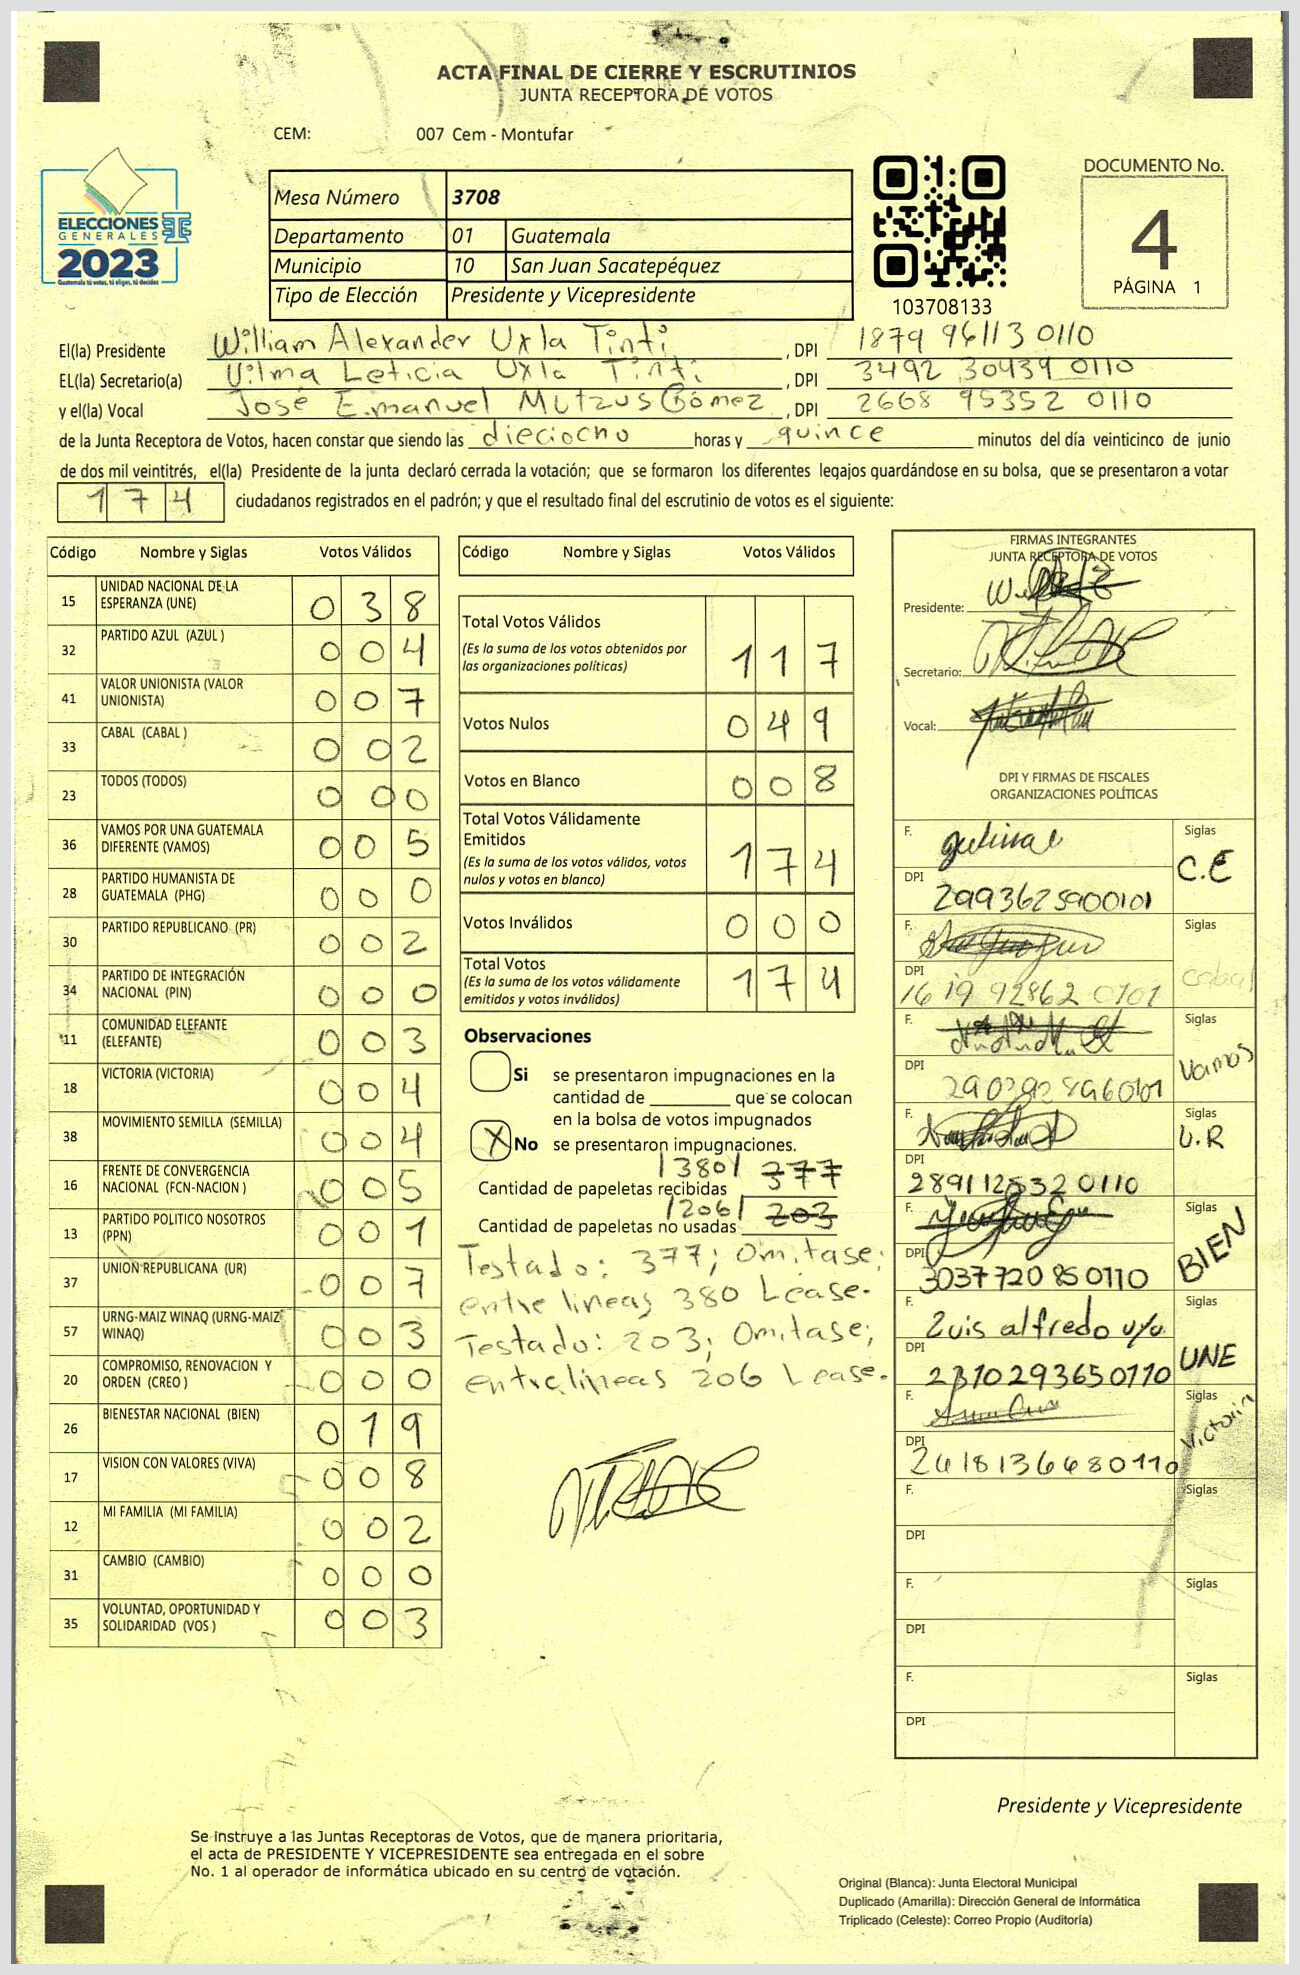 ACTA FINAL DE CIERRE Y ESCRUTINIOS
JUNTA RECEPTORA DE VOTOS
CEM: 007 Cem - Montufar
ELECCIONES
GENERALES
2023
Guatemala tú votas, tú eliges, tú decides
Mesa Número 3708
Departamento 01 Guatemala
Municipio 10 San Juan Sacatepéquez
Tipo de Elección Presidente y Vicepresidente
103708133
DOCUMENTO No.
4
PÁGINA 1
El(la) Presidente William Alexander Uxla Tinti, DPI 1879 96113 0110
EL(la) Secretario(a) Vilma Leticia Uxla Tinti, DPI 3492 30939 0110
y el(la) Vocal José Emanuel Mutzus Gómez, DPI 2668 95352 0110
de la Junta Receptora de Votos, hacen constar que siendo las dieciocho horas y quince minutos del día veinticinco de junio
de dos mil veintitrés, el(la) Presidente de la junta declaró cerrada la votación; que se formaron los diferentes legajos guardándose en su bolsa, que se presentaron a votar
174 ciudadanos registrados en el padrón; y que el resultado final del escrutinio de votos es el siguiente:
Código Nombre y Siglas Votos Válidos
15 UNIDAD NACIONAL DE LA ESPERANZA (UNE) 038
32 PARTIDO AZUL (AZUL ) 004
41 VALOR UNIONISTA (VALOR UNIONISTA) 007
33 CABAL (CABAL ) 002
23 TODOS (TODOS) 000
36 VAMOS POR UNA GUATEMALA DIFERENTE (VAMOS) 005
28 PARTIDO HUMANISTA DE GUATEMALA (PHG) 000
30 PARTIDO REPUBLICANO (PR) 002
34 PARTIDO DE INTEGRACIÓN NACIONAL (PIN) 000
11 COMUNIDAD ELEFANTE (ELEFANTE) 003
18 VICTORIA (VICTORIA) 004
38 MOVIMIENTO SEMILLA (SEMILLA) 004
16 FRENTE DE CONVERGENCIA NACIONAL (FCN-NACION ) 005
13 PARTIDO POLITICO NOSOTROS (PPN) 001
37 UNION REPUBLICANA (UR) 007
57 URNG-MAIZ WINAQ (URNG-MAIZ WINAQ) 003
20 COMPROMISO, RENOVACION Y ORDEN (CREO ) 000
26 BIENESTAR NACIONAL (BIEN) 019
17 VISION CON VALORES (VIVA) 008
12 MI FAMILIA (MI FAMILIA) 002
31 CAMBIO (CAMBIO) 000
35 VOLUNTAD, OPORTUNIDAD Y SOLIDARIDAD (VOS ) 003
Código Nombre y Siglas Votos Válidos
Total Votos Válidos
(Es la suma de los votos obtenidos por
las organizaciones políticas) 117
Votos Nulos 049
Votos en Blanco 008
Total Votos Válidamente
Emitidos
(Es la suma de los votos válidos, votos
nulos y votos en blanco) 174
Votos Inválidos 000
Total Votos
(Es la suma de los votos válidamente
emitidos y votos inválidos) 174
Observaciones
Si se presentaron impugnaciones en la
cantidad de ________ que se colocan
en la bolsa de votos impugnados
X No se presentaron impugnaciones.
Cantidad de papeletas recibidas /380/ 377
Cantidad de papeletas no usadas /206/ 203
Testado: 377; Omitase;
entre lineas 380 Lease.
Testado: 203; Omitase;
entrelineas 206 Lease.
FIRMAS INTEGRANTES
JUNTA RECEPTORA DE VOTOS
Presidente:
Secretario:
Vocal:
DPI Y FIRMAS DE FISCALES
ORGANIZACIONES POLÍTICAS
F. Siglas C.E
DPI 2993625900101
F. Siglas Cabal
DPI 1619 92862 0101
F. Siglas Vamos
DPI
F. Siglas U.R
DPI
F. Siglas BIEN
DPI 3037720850110
F. Luis alfredo Siglas UNE
DPI 2310293650110
F. Siglas Victoria
DPI 2418136680110
F. Siglas
DPI
F. Siglas
DPI
F. Siglas
DPI
Presidente y Vicepresidente
Se instruye a las Juntas Receptoras de Votos, que de manera prioritaria,
el acta de PRESIDENTE Y VICEPRESIDENTE sea entregada en el sobre
No. 1 al operador de informática ubicado en su centro de votación.
Original (Blanca): Junta Electoral Municipal
Duplicado (Amarilla): Dirección General de Informática
Triplicado (Celeste): Correo Propio (Auditoría)